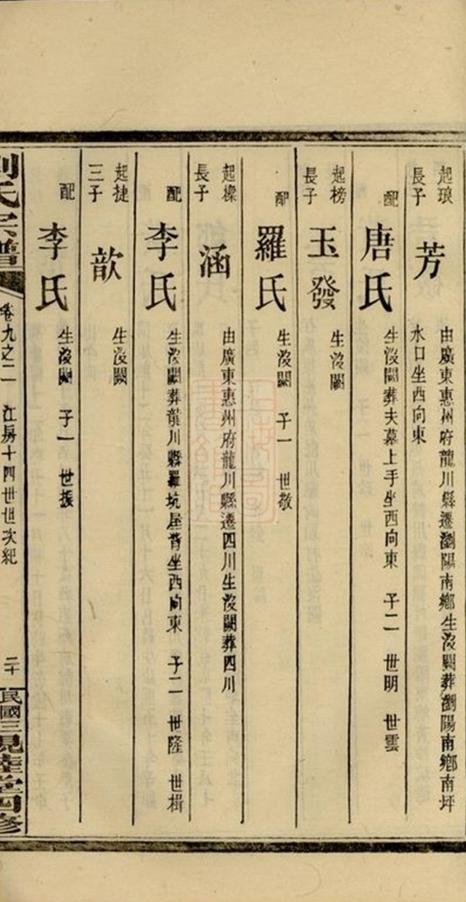 起琅長子 芳 由廣東惠州府龍川縣遷瀏陽南鄉生沒闕葬瀏陽南鄉南坪
水口坐西向東
配 唐氏 生沒闕葬夫墓上手坐西向東 子二 世明 世雲
起榜長子 玉發 生沒闕
配 羅氏 生沒闕 子一 世敬
起樑長子 涵 由廣東惠州府龍川縣遷四川生沒闕葬四川
配 李氏 生沒闕葬龍川縣羅坑屋背坐西向東 子二 世隆 世楫
起捷三子 歆 生沒闕
配 李氏 生沒闕 子一 世振
劉氏宗譜 卷九之二 江房十四世世次紀 二十 民國三 堂四修